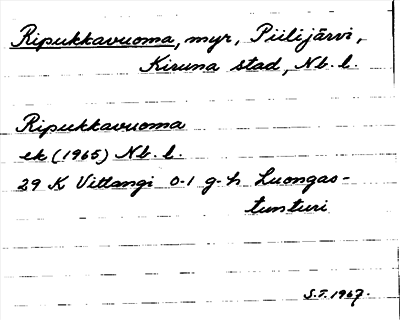 Ripukkavuoma, myr, Piilijärvi,
Kiruna stad, Nb. l.
Ripukkavuoma
ek (1965) Nb. l.
29 K Vittangi 0-1 g-h Luongas-
tunturi
S.T. 1967.